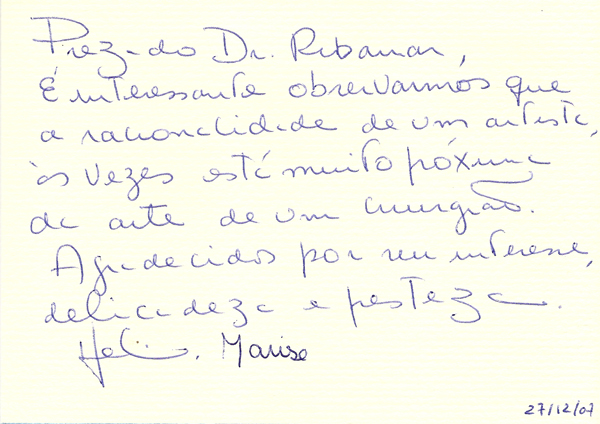 Prezado Dr. Ribamar,
É interessante observarmos que
a racionalidade de um artista,
às vezes está muito próxima
da arte de um cirurgião.
Agradecidos por seu interesse,
delicadeza e presteza.
Marise
27/12/07